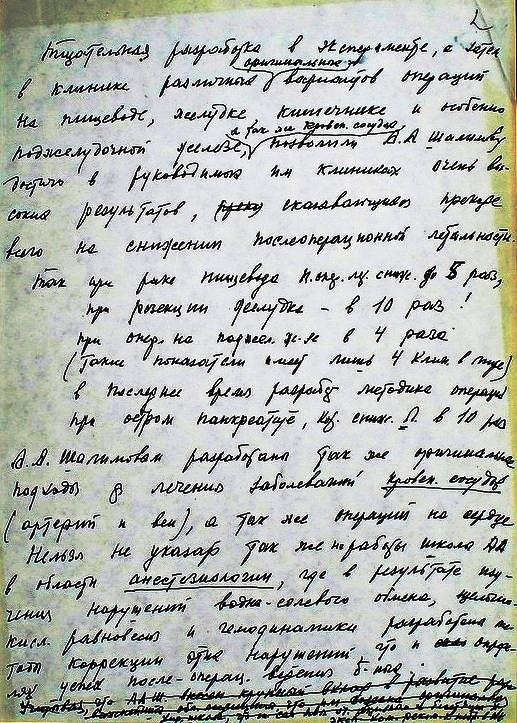 2
Тщательная разработка в эксперименте, а затем
оригинальных
в клинике различных вариантов операций
на пищеводе, желудке кишечнике и особенно
а так же кровен. сосудах
поджелудочной железе, позволили А.А Шалимову
достичь в руководимых им клиниках очень вы-
соких результатов, сказавшихся прежде
всего на снижении послеоперационной летальности.
Так при раке пищевода сниж. до 5 раз,
при резекции желудка - в 10 раз!
при опер. на поджел. ж-зе в 4 раза
(Такие показатели имеют лишь 4 клин. в мире)
в последнее время разраб. методика операций
при остром панкреатите, сниж. Л. в 10 раз
А.А. Шалимовым разработаны так же оригинальные
подходы в лечении заболеваний кровен. сосудов
(артерий и вен), а так же операций на сердце
Нельзя не указать так же работы школы АА
в области анестезиологии, где в результате изу-
чения нарушений водно-солевого обмена, щелочно-
кисл. равновесия и гемодинамики разработаны ме-
тоды коррекции этих нарушений что и опреде-
лял успех после-операц. ведения б-ных.